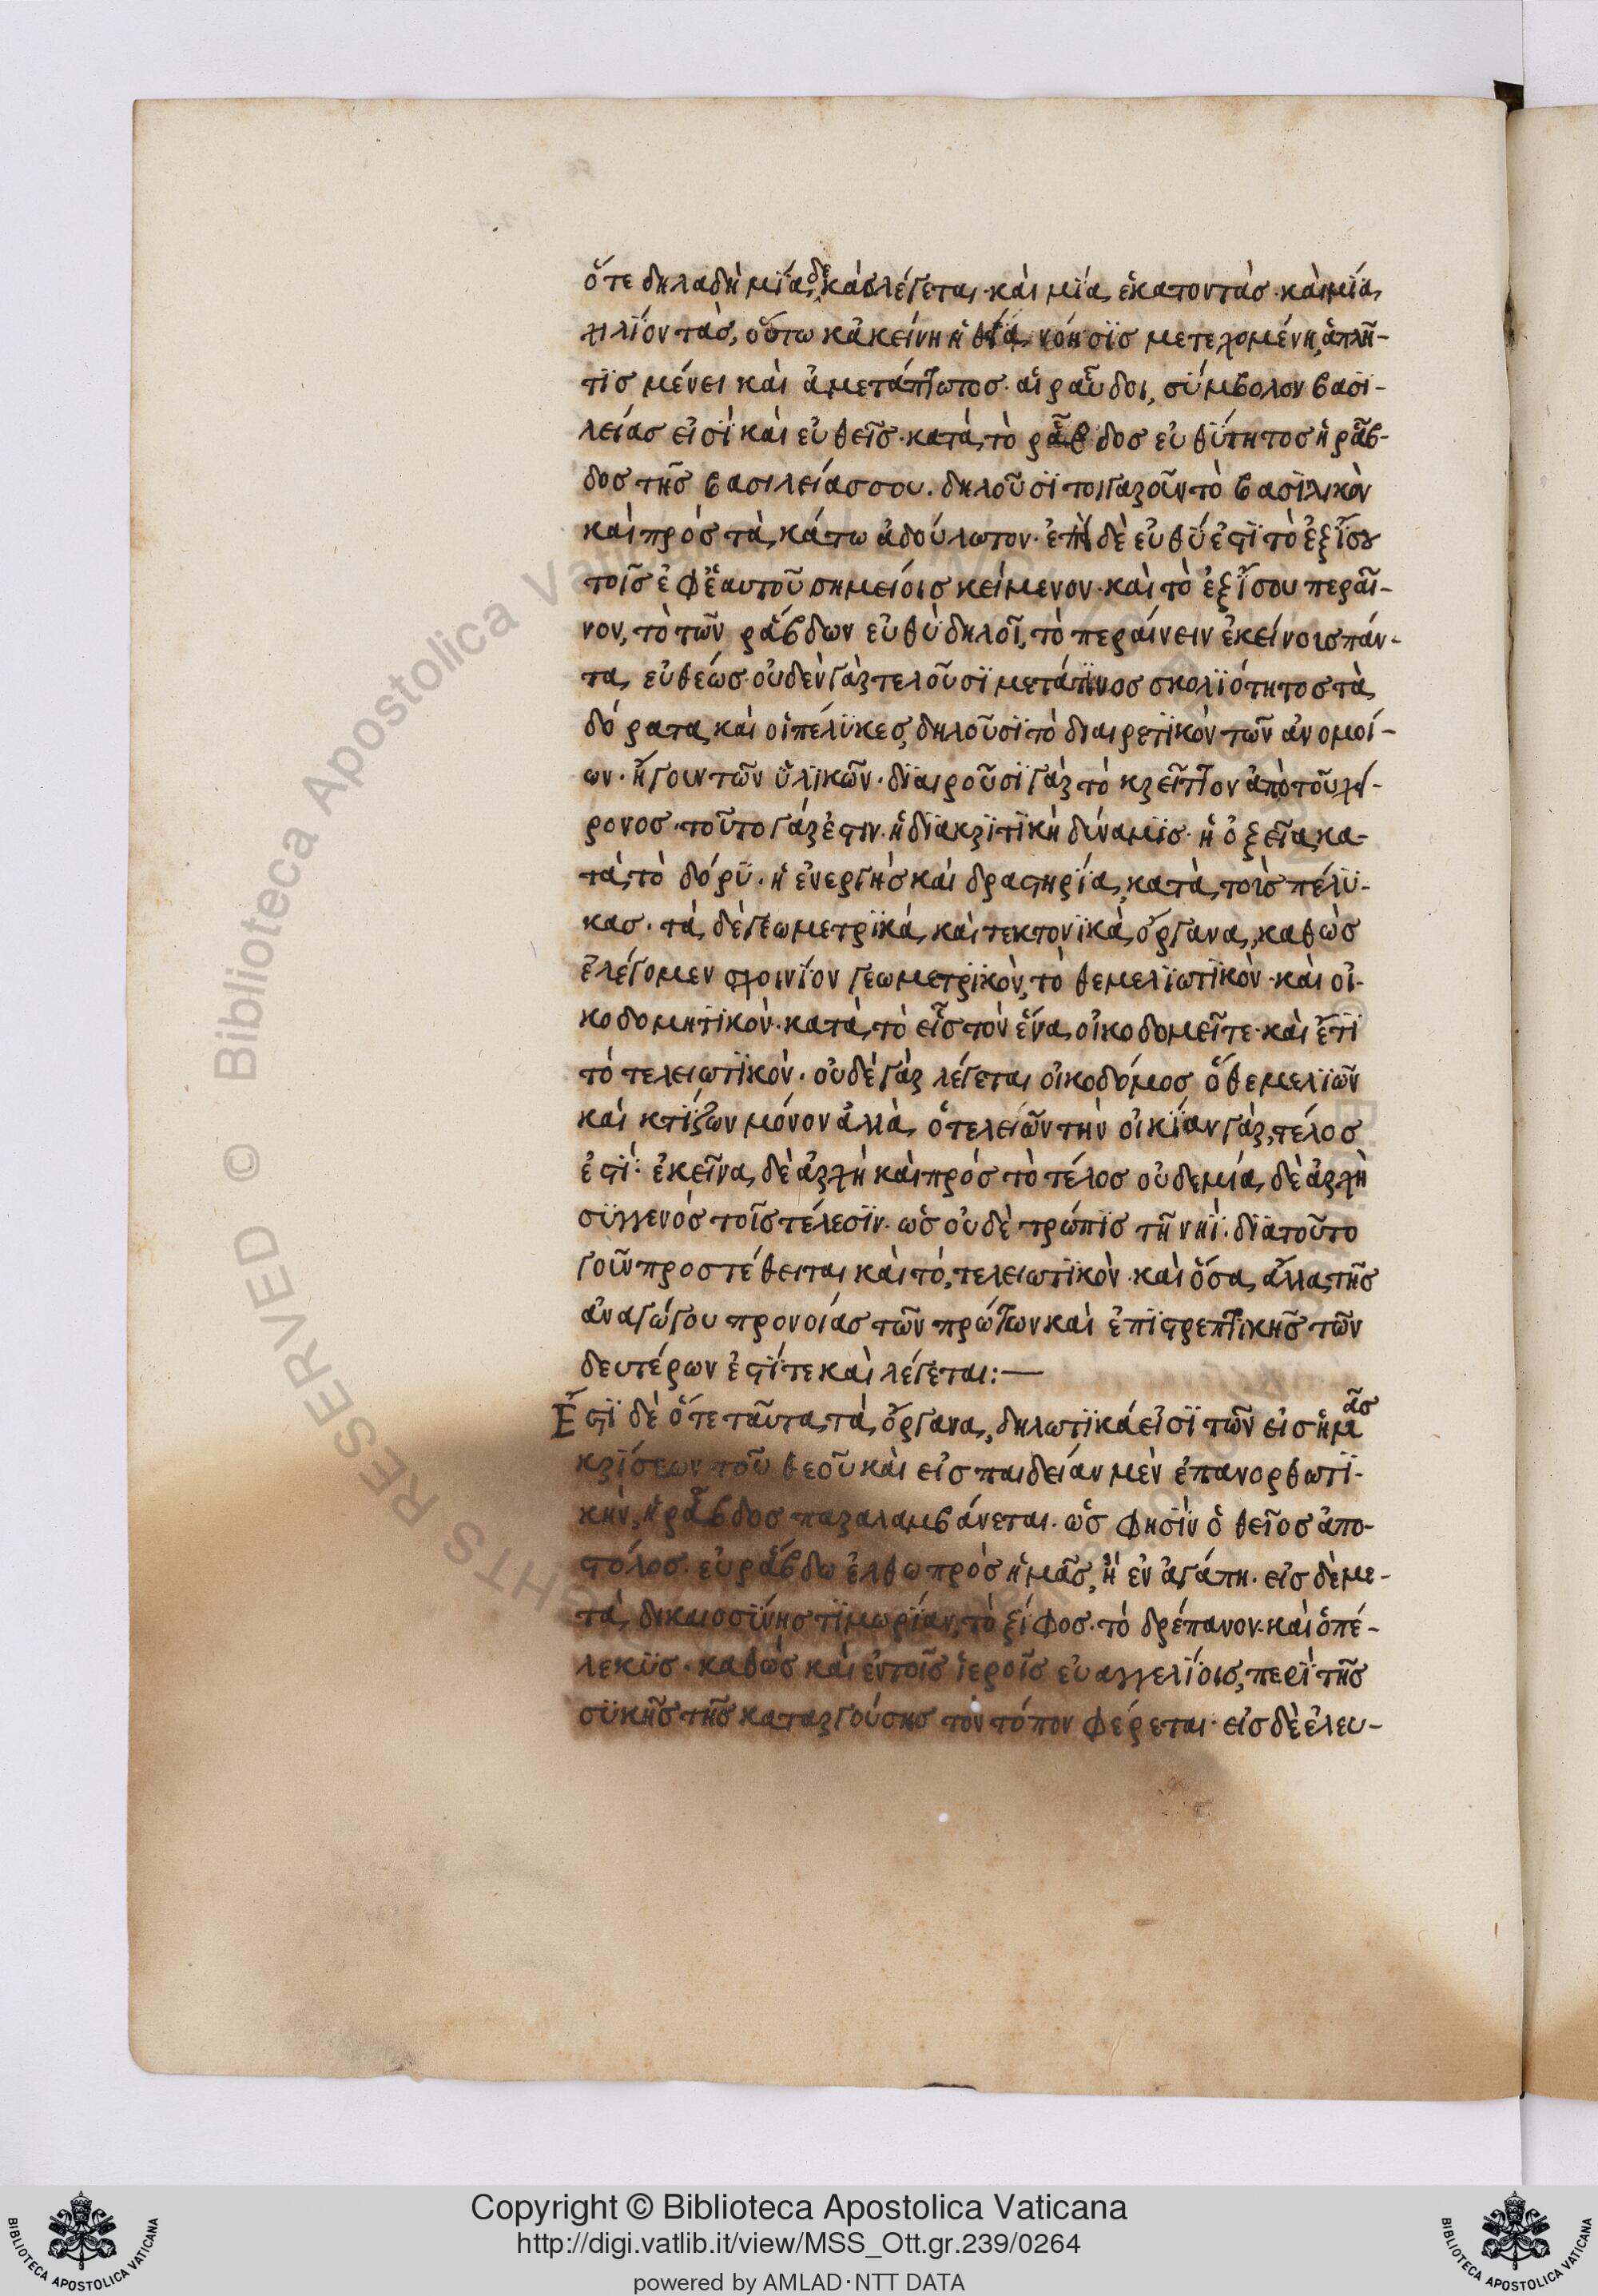 ὅτε δηλαδὴ μΐα δεκὰς λέγεται· καὶ μΐα ἑκατοντὰς· καὶ μΐα
χιλϊοντὰς, οὕτω κἀκείνη ἡ θεΐα νόησϊς μετεχομένη, ἀπλή-
τϊς μένει καὶ ἀμετάπτωτος· αἱ ράβδοι, σύμβολον βασϊ-
λείας εἰσϊ καὶ εὐθεῖς· κατὰ τὸ ράβδος εὐθύτητος ἡ ράβ-
δος τῆς βασιλείας σου. δηλοῦσϊ τοιγαροῦν τὸ βασϊλικὸν
καὶ πρὸς τὰ κάτω ἀδούλωτον· ἐπεὶ δὲ εὐθύ ἐστϊ τὸ ἐξΐσου
τοῖς ἐφ' ἑαυτοῦ σημείοις κείμενον· καὶ τὸ ἐξΐσου περαῖ-
νον, τὸ τῶν ράβδων εὐθὺ δηλοῖ, τὸ περαίνειν ἐκείνοις πάν-
τα εὐθέως· οὐδὲν γὰρ τελοῦσϊ μετά τϊνος σκολϊότητος τὰ
δόρατα καὶ οἱ πέλϋκες, δηλοῦσϊ τὸ διαιρετϊκὸν τῶν ἀνομοί-
ων· ἤγουν τῶν ὑλϊκῶν· δϊαιροῦσϊ γὰρ τὸ κρεῖττον ἀπὸ τοῦ χεί-
ρονος· τοῦτο γάρ ἐστιν· ἡ δϊακρϊτϊκὴ δύναμϊς· ἡ ὀξεῖα κα-
τὰ τὸ δόρϋ· ἡ ἐνεργὴς καὶ δραστηρΐα, κατὰ τοὺς πέλϋ-
κας· τὰ δὲ γεωμετρϊκὰ καὶ τεκτονϊκὰ ὄργανα, καθὼς
ἐλέγομεν σχοινΐον γεωμετρϊκὸν, τὸ θεμελϊωτϊκὸν· καὶ οἰ-
κοδομητϊκὸν· κατὰ τὸ εἷς τὸν ἕνα οἰκοδομεῖτε· καὶ ἔτϊ
τὸ τελειωτϊκὸν· οὐδὲ γὰρ λέγεται οἰκοδόμος ὁ θεμελϊῶν
καὶ κτΐζων μόνον ἀλλὰ ὁ τελειῶν τὴν οἰκΐαν γὰρ, τέλος
ἐστϊ· ἐκεῖνα δὲ ἀρχὴ καὶ πρὸς τὸ τέλος οὐδεμία δὲ ἀρχὴ
σϋγγενὸς τοῖς τέλεσϊν· ὡς οὐδὲ τρώπϊς τῆ νηΐ· δϊατοῦτο
γοῦν προστέθειται καὶ τό, τελειωτϊκὸν· καὶ ὅσα ἄλλα τῆς
ἀναγώγου προνοίας τῶν πρώτων καὶ ἐπϊστρεπτικῆς τῶν
δευτέρων ἐστΐ τε καὶ λέγεται:—
Ἔστϊ δὲ ὅτε ταῦτα τὰ ὄργανα, δηλωτϊκά εἰσϊ τῶν εἰς ἡμᾶς
κρΐσεων τοῦ θεοῦ καὶ εἰς παιδείαν μὲν ἐπανορθωτϊ-
κὴν, ἡ ράβδος παραλαμβάνεται· ὡς φησϊν ὁ θεῖος ἀπο-
στόλος· εὐράβδω ἔλθω πρὸς ἡμᾶς, ἢ ἐν ἀγάπη· εἰς δὲ με-
τὰ δικαιοσΰνης τϊμωρΐαν, τὸ ξίφος· τὸ δρέπανον καὶ ὁ πέ-
λεκϋς· καθὼς καὶ ἐν τοῖς ἱεροῖς εὐαγγελΐοις, περὶ τῆς
σϋκῆς τῆς καταργούσης τὸν τόπον φέρεται· εἰς δὲ ἐλευ-
Copyright © Biblioteca Apostolica Vaticana
http://digi.vatlib.it/view/MSS_Ott.gr.239/0264
powered by AMLAD·NTT DATA
BIBLIOTECA APOSTOLICA VATICANA
BIBLIOTECA APOSTOLICA VATICANA